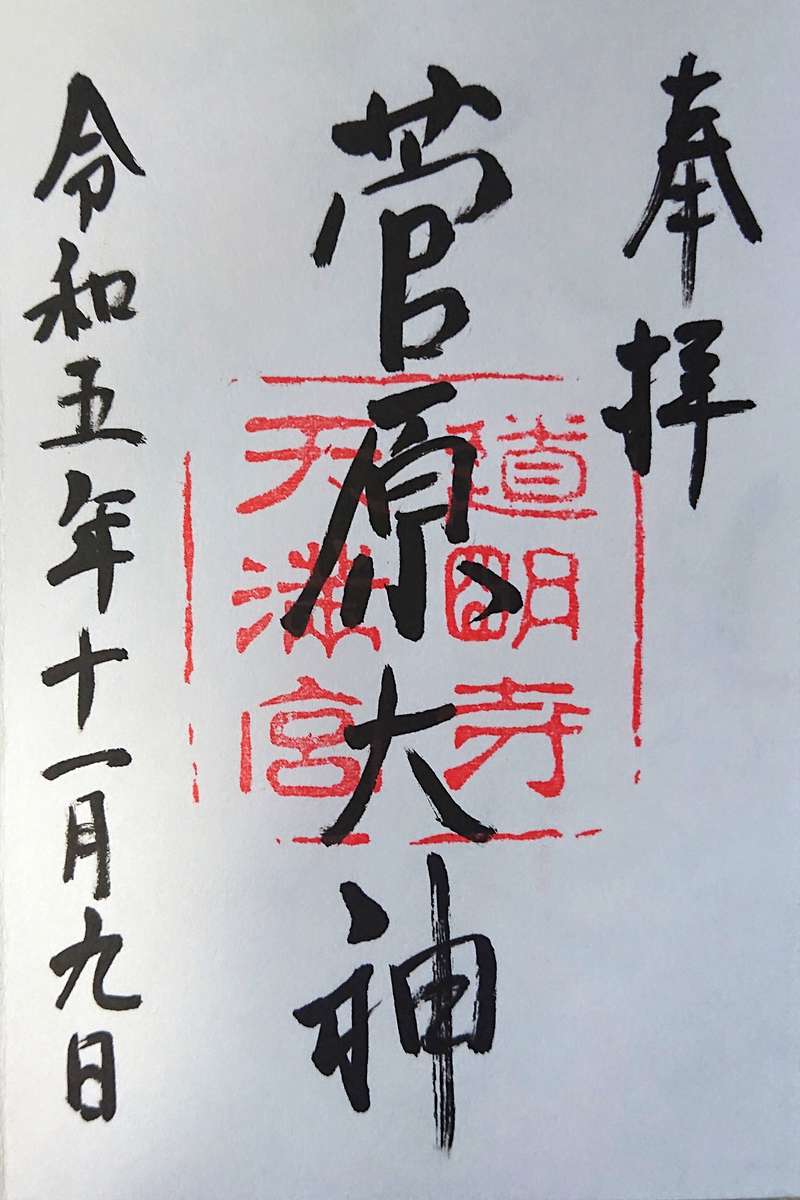 奉拝
菅原大神
道明寺
天満宮
令和五年十一月九日